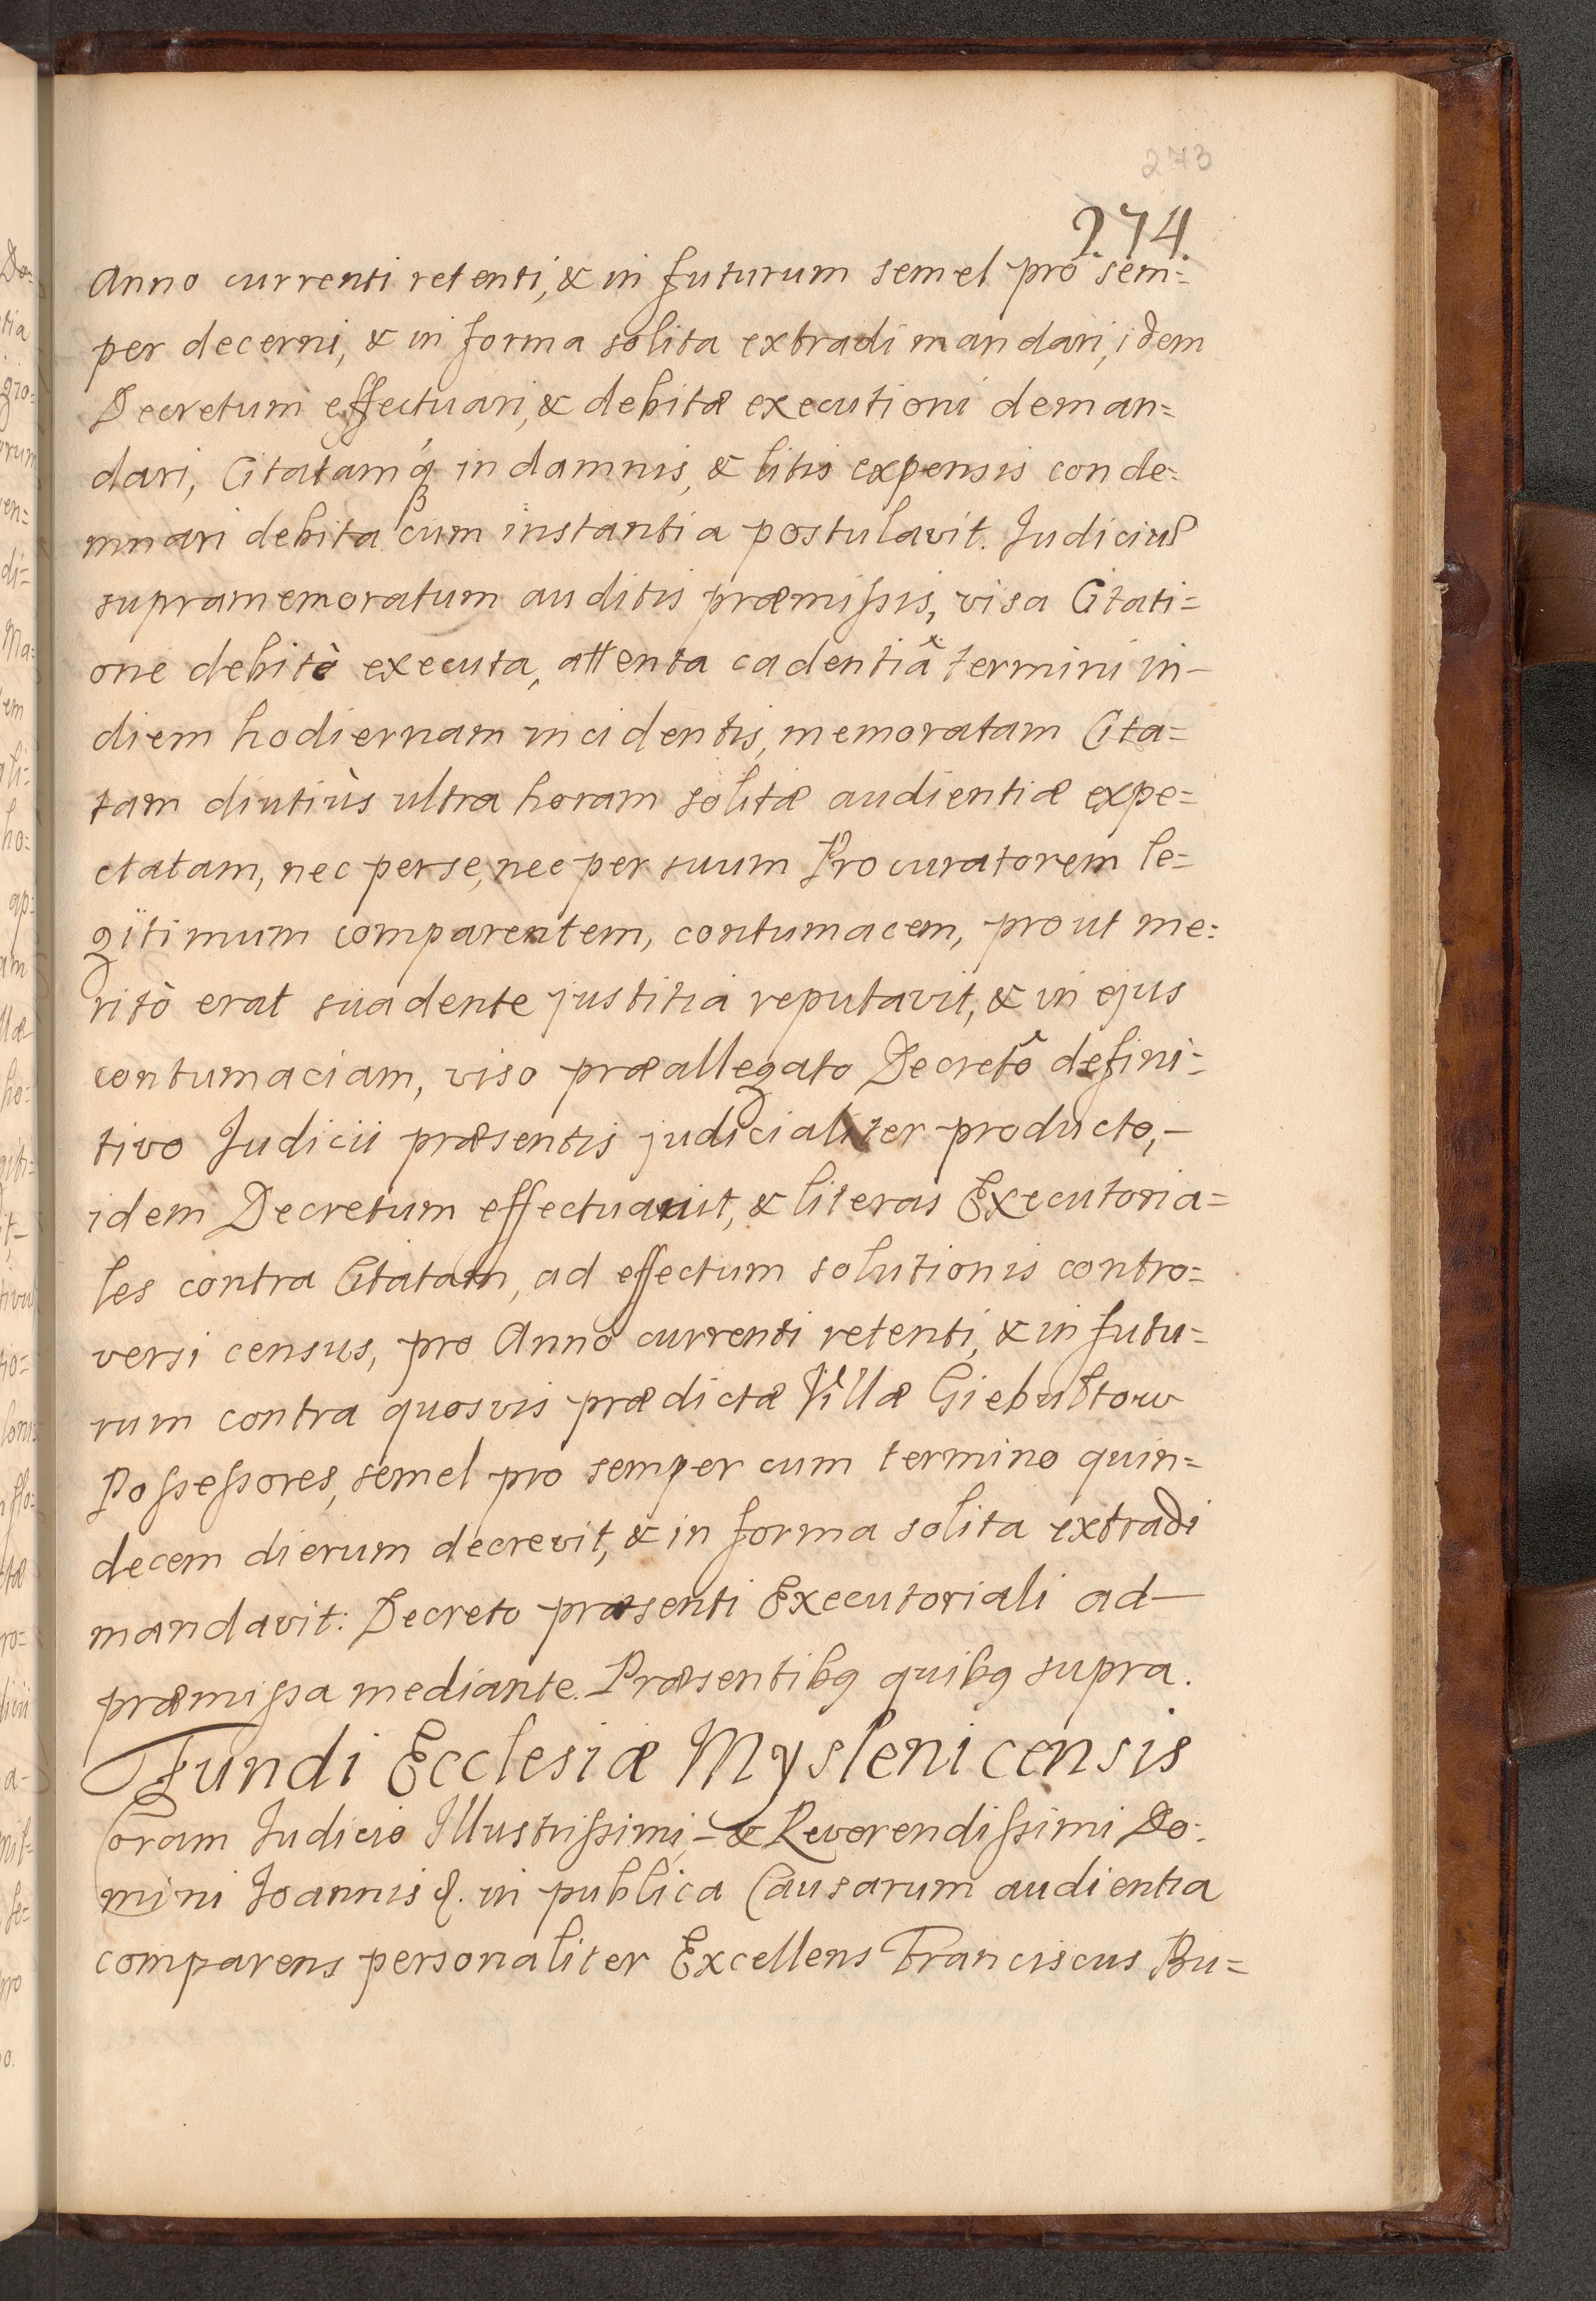 273
274
Anno currenti retenti, & in futurum semel pro sem=
per decerni, & in forma solita extradi mandari, idem
Decretum effectuari, & debitæ executioni deman=
dari, Citatamq́ in damnis, & litis expensis conde=
mnari debita cum instantia postulavit. Judiciũ
supramemoratum auditis præmißis, visa Citati=
one debitè executa, attenta cadentiâ termini in—
diem hodiernam incidentis, memoratam Cita=
tam diutiùs ultra horam solitæ audientiæ expe=
ctatam, nec per se, nec per suum Procuratorem le=
gitimum comparentem, contumacem, prout me=
ritò erat suadente justitia reputavit, & in ejus
contumaciam, viso præallegato Decretô defini=
tivo Judicii præsentis judicialiter producto, —
idem Decretum effectuavit, & literas Executoria=
les contra Citatam, ad effectum solutionis contro=
versi census, pro Anno currenti retenti, & in futu=
rum contra quosvis prædictæ Villæ Giebułtow
Poßeßores, semel pro semper cum termino quin=
decem dierum decrevit, & in forma solita extradi
mandavit: Decreto præsenti Executoriali ad—
præmißa mediante. Præsentibq quibq supra.
Fundi Ecclesiæ Myslenicensis
Coram Judicio Illustrißimi, — & Reverendißimi Do=
mini Joannis &. in publica Causarum audientia
comparens personaliter Excellens Franciscus Bu=